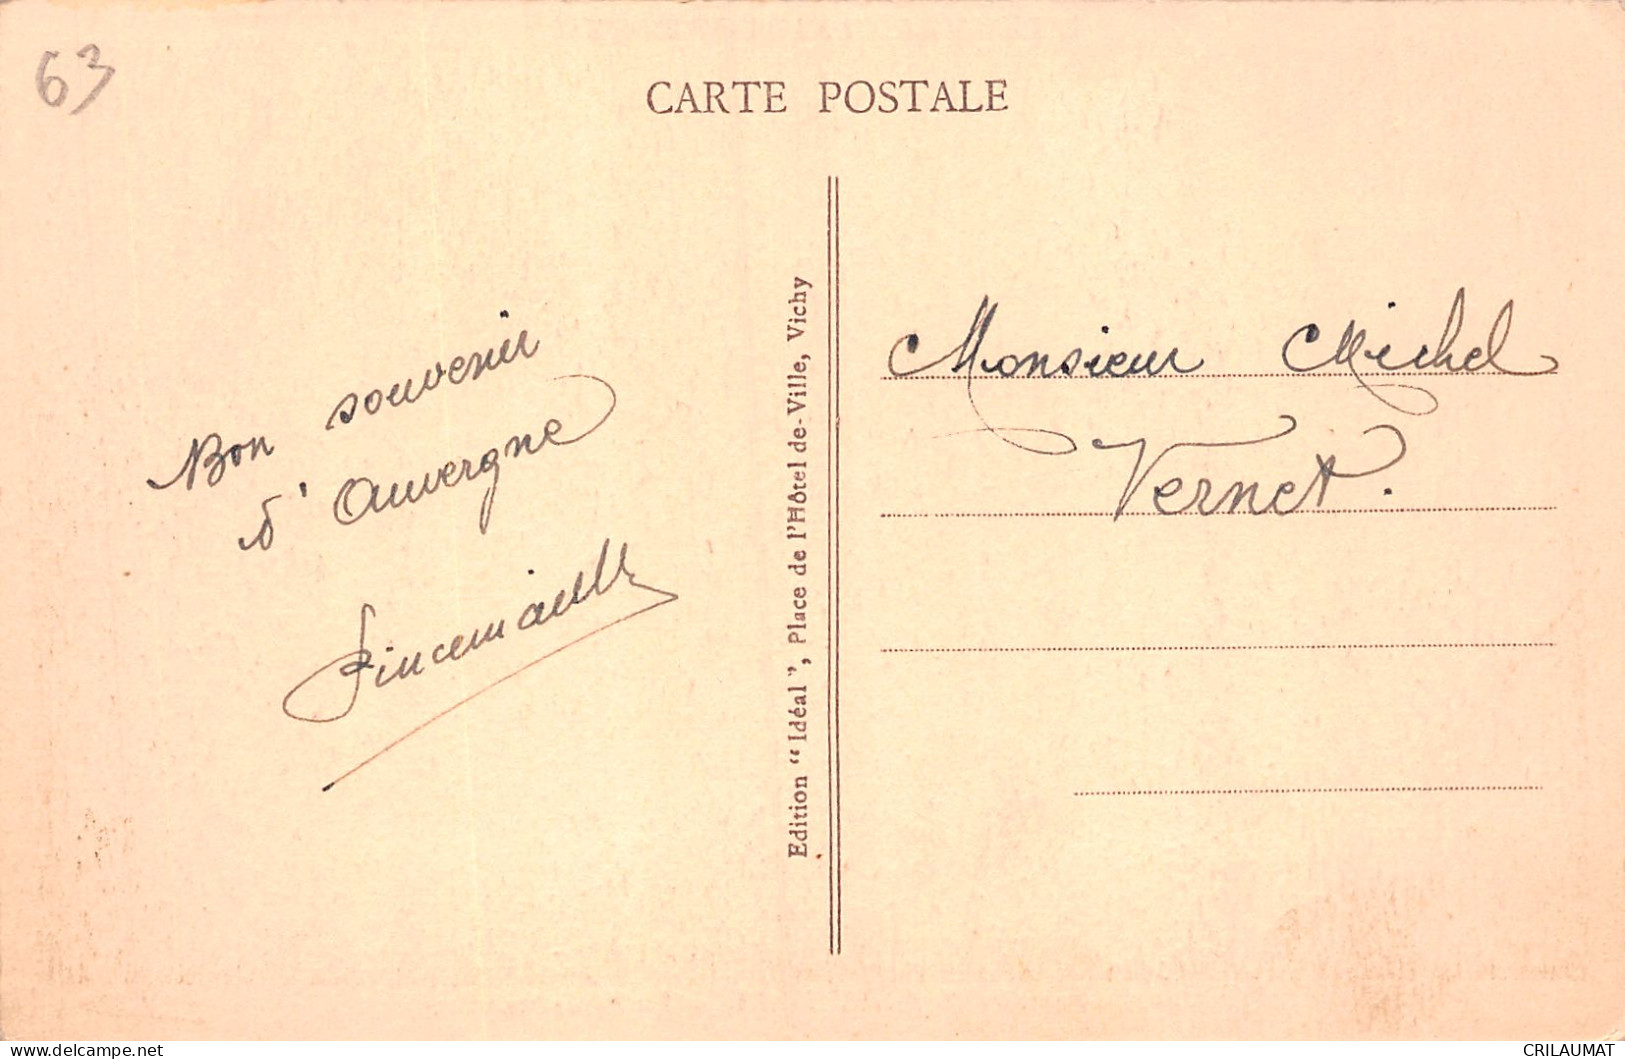 63
CARTE POSTALE
Bon souvenir
d'Auvergne
Edition “Idéal”, Place de l'Hôtel de-Ville, Vichy
Monsieur Michel
Vernet.
www.delcampe.net
CRILAUMAT